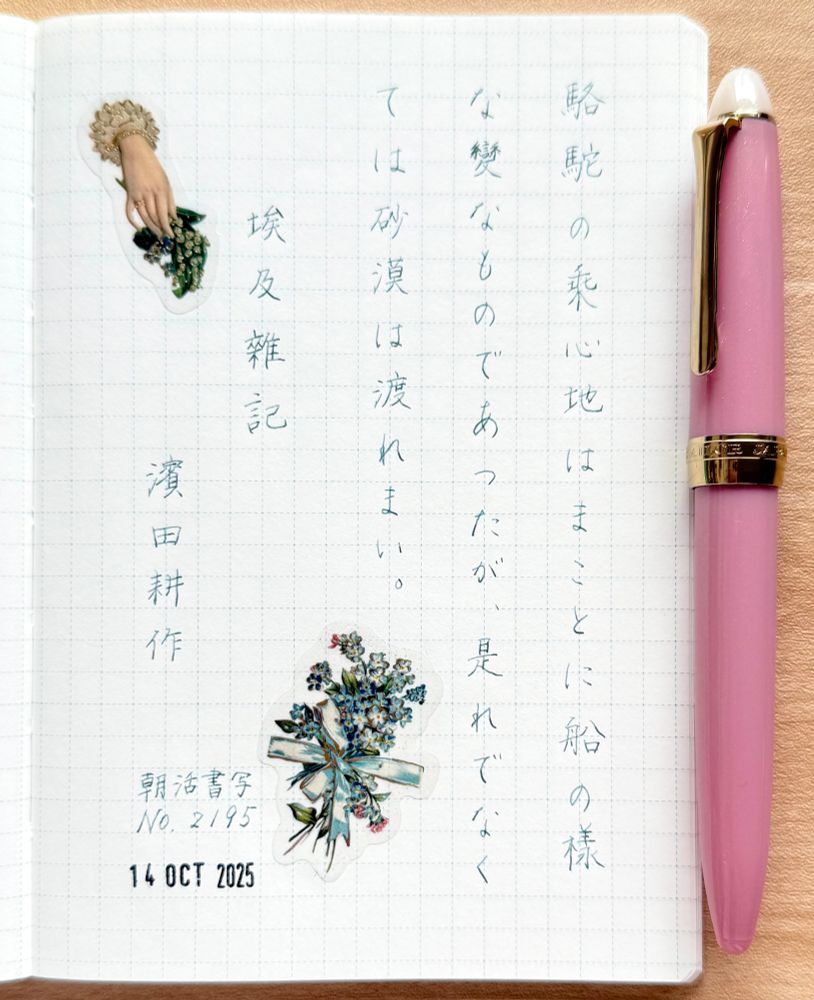 駱駝の乘心地はまことに船の樣
な變なものであつたが、是れでなく
ては砂漠は渡れまい。
埃及雜記
濱田耕作
朝活書写
No. 2195
14 OCT 2025